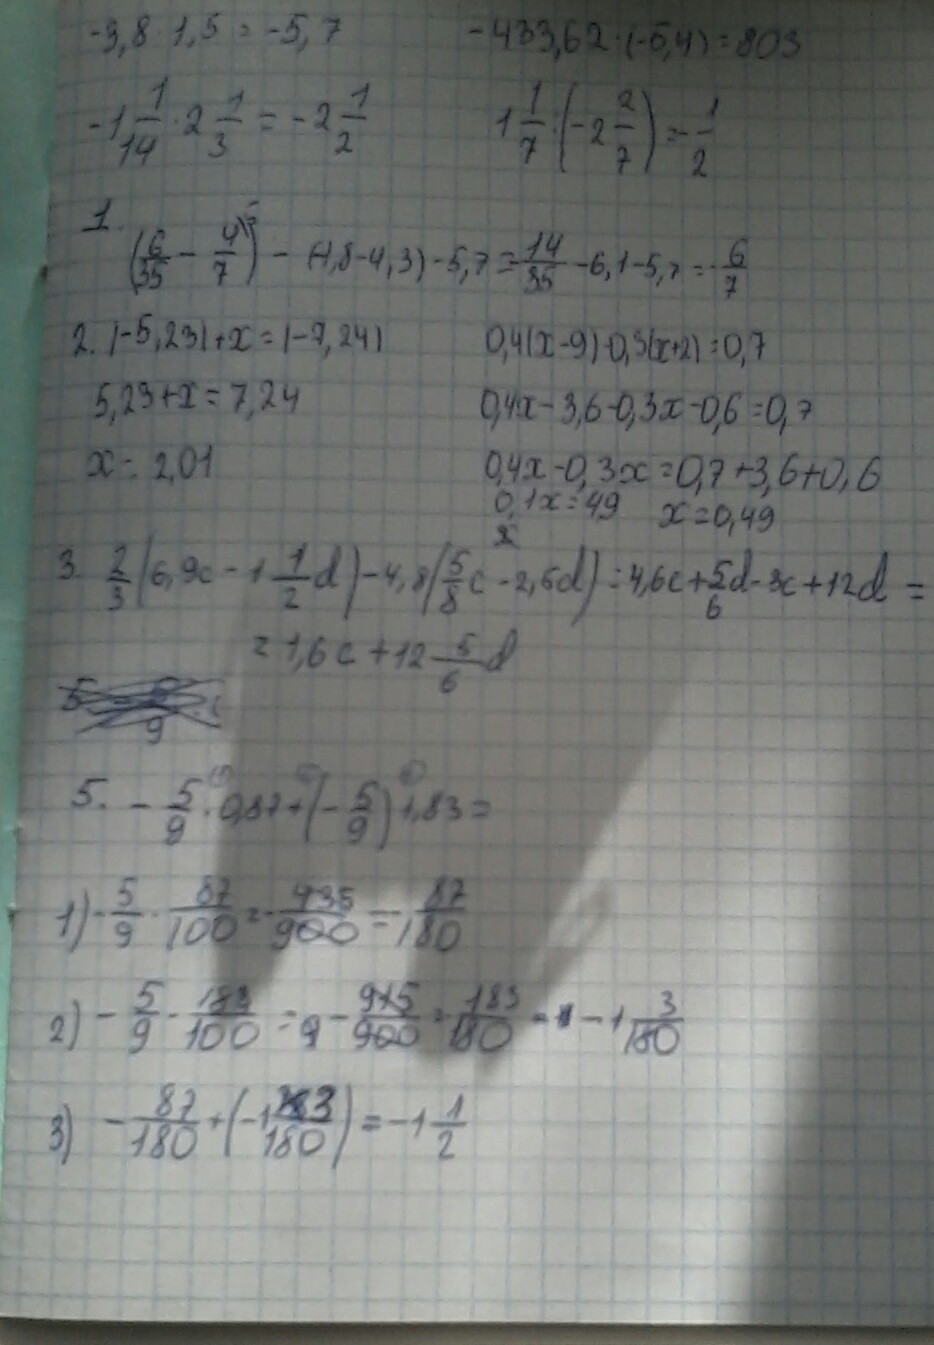 -3,8 · 1,5 = -5,7 -433,62 : (-5,4) = 803
-1 1/14 · 2 1/3 = -2 1/2 1 1/7 : (-2 2/7) = -1/2
1. (6/35 - 4/7) - (-1,8-4,3) - 5,7 = 14/35 - 6,1 - 5,7 = -6/7
2. |-5,23| + x = |-7,24| 0,4(x-9)-0,3(x+2) = 0,7
5,23+x = 7,24 0,4x-3,6-0,3x-0,6 = 0,7
x = 2,01 0,4x-0,3x = 0,7+3,6+0,6
0,1x = 49 x = 0,49
3. 2/3 (6,9c - 1 1/2 d) - 4,8 (5/8 c - 2,5d) = 4,6c + 5/6 d - 3c + 12d =
= 1,6c + 12 5/6 d
5. - 5/9 · 0,87 + (- 5/9) 1,83 =
1) - 5/9 · 87/100 = - 435/900 = - 87/180
2) - 5/9 · 183/100 = - 915/900 = 183/180 = -1 3/180
3) - 87/180 + (-1 3/180) = -1 1/2